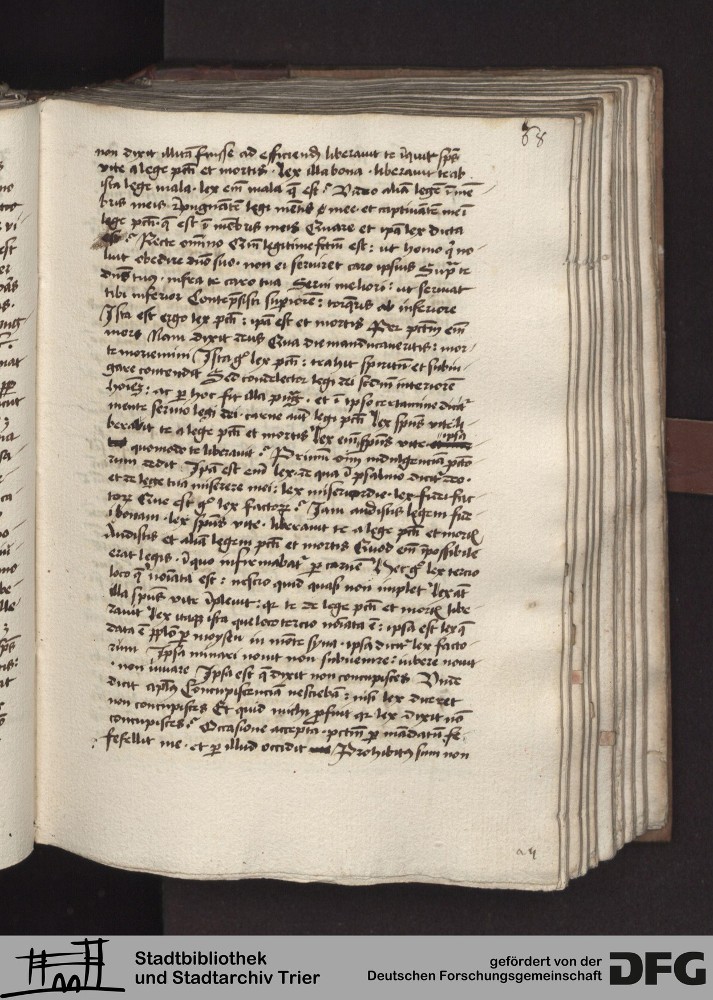 68
non dixit illicita fuisse ad efficiendum liberauit te inquit sps
vite a lege pcti et mortis · lex illa bona · liberauit te ab
ista lege mala · lex eni mala q est? Video alia lege i me
bris meis repugnate legi metis mee · et captiuate me i
lege pcti · q est i mebris meis Quare et ipa lex dicta
Recte omnino legitime fctm est : ut homo q no
luit obedire dno suo · non ei seruiret caro ipsius Supra te
dns tuus · infra te caro tua Serui meliori : ut seruiat
tibi inferior Contepsisti superiore : torqueris ab inferiore
Ista est ergo lex pcti : ipa est et mortis Per pctm eni
mors Nam dixit deus Qua die manducaueritis : mor
te moriemini Ista g lex pcti : trahit spiritu et subiu
gare contendit Sed condelector legi dei scdm interiore
hoiez : ac per hoc fit illa pugna · et i ipso certamine dicit
mente seruio legi dei · carne aut legi pcti Lex spus vite li
berauit te a lege pcti et mortis Lex eni spus vite ipsa
quomodo te liberauit? Primum eni indulgencia pcto
rum dedit Ipa est eni lex · de qua i psalmo dicit deo ·
et de lege tua miserere mei : lex misericordie · lex fidei · fac
torz Que est g lex factorz? Iam audistis legem fide
i bonam · lex spus vite · liberauit te a lege pcti et mortis
Audistis et alia legem pcti et mortis Quod eni impossibile
erat legis · i quo infirmabat per carne Hec g lex tercio
loco q noiata est : nescio quid quasi non implet lex at
illa spus vite impleuit : qr te de lege pcti et mortis libe
rauit Lex itaqz ista que loco tercio noiata e : ipsa est lex q
data e pplo per moysen in monte syna · ipsa dicit lex facto
rum Ipsa minari nouit non subuenire : iubere nouit
· non iuuare Ipsa est q dixit non concupisces Unde
dicit aplus Concupiscencia nesciebam : nisi lex diceret
non concupisces Et quid michi profuit qr lex dixit no
concupisces? Occasione accepta · pctm per mandatu fe
fellit me · et per illud occidit Prohibitus sum non
Stadtbibliothek
und Stadtarchiv Trier
gefördert von der
Deutschen Forschungsgemeinschaft
DFG